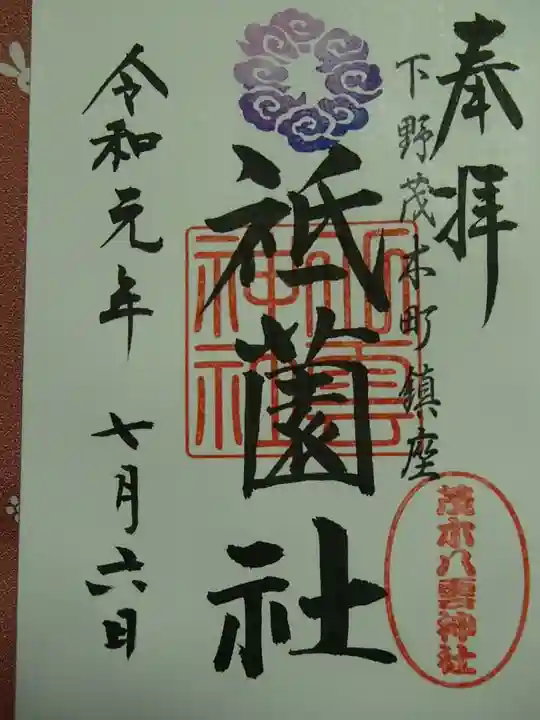 奉拝
下野茂木町鎮座
祇薗社
八雲神社
茂木八雲神社
令和元年 七月六日